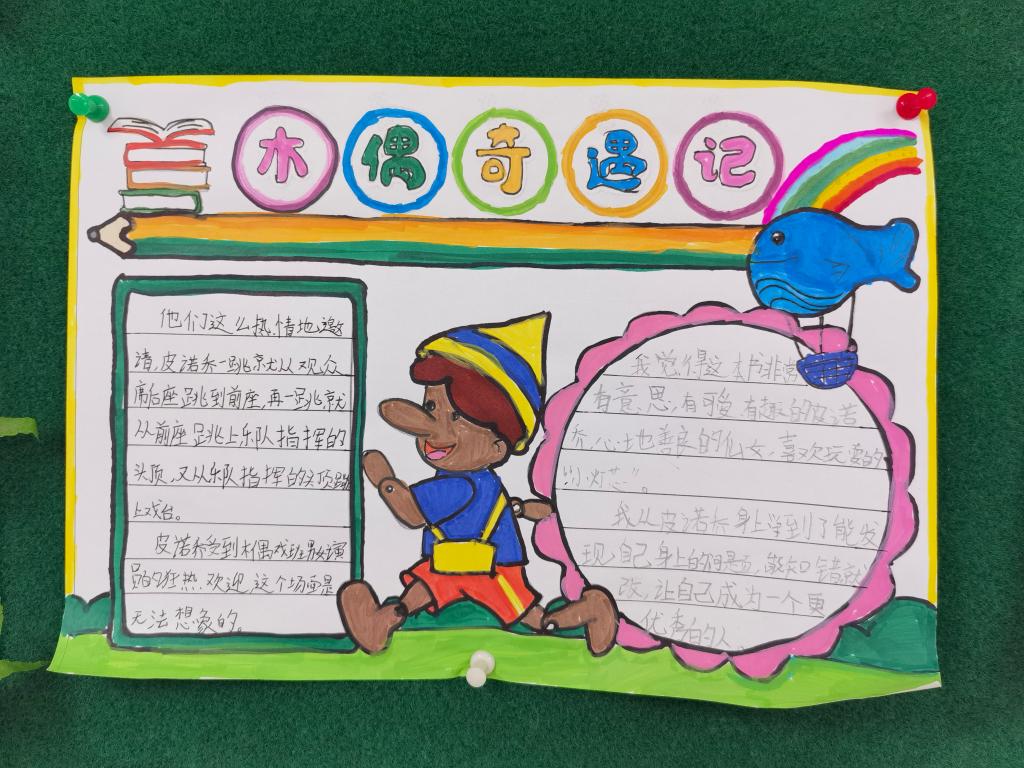 木偶奇遇记
他们这么热情地邀
请,皮诺乔一跳就从观众
席后座跳到前座,再一跳就
从前座跳上乐队指挥的
头顶,又从乐队指挥的头顶跳
上戏台。
皮诺乔受到木偶戏班男女演
员的狂热欢迎,这个场面是
无法想象的。
我觉得这本书非常
有意思,有可爱有趣的皮诺
乔,心地善良的仙女,喜欢玩耍的
“小灯芯”。
我从皮诺乔身上学到了能发
现自己身上的问题,能知错就
改,让自己成为一个更
优秀的人。